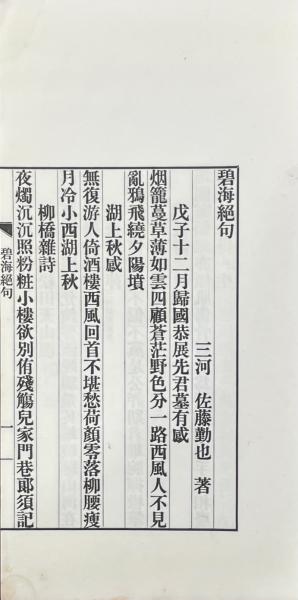 碧海絕句
三河　佐藤勤也　著
戊子十二月歸國恭展先君墓有感
烟籠蔓草薄如雲四顧蒼茫野色分一路西風人不見
亂鴉飛繞夕陽墳
湖上秋感
無復游人倚酒樓西風回首不堪愁荷顏零落柳腰瘦
月冷小西湖上秋
柳橋雜詩
夜燭沉沉照粉粧小樓欲別侑殘觴兒家門巷郞須記
碧海絕句
一